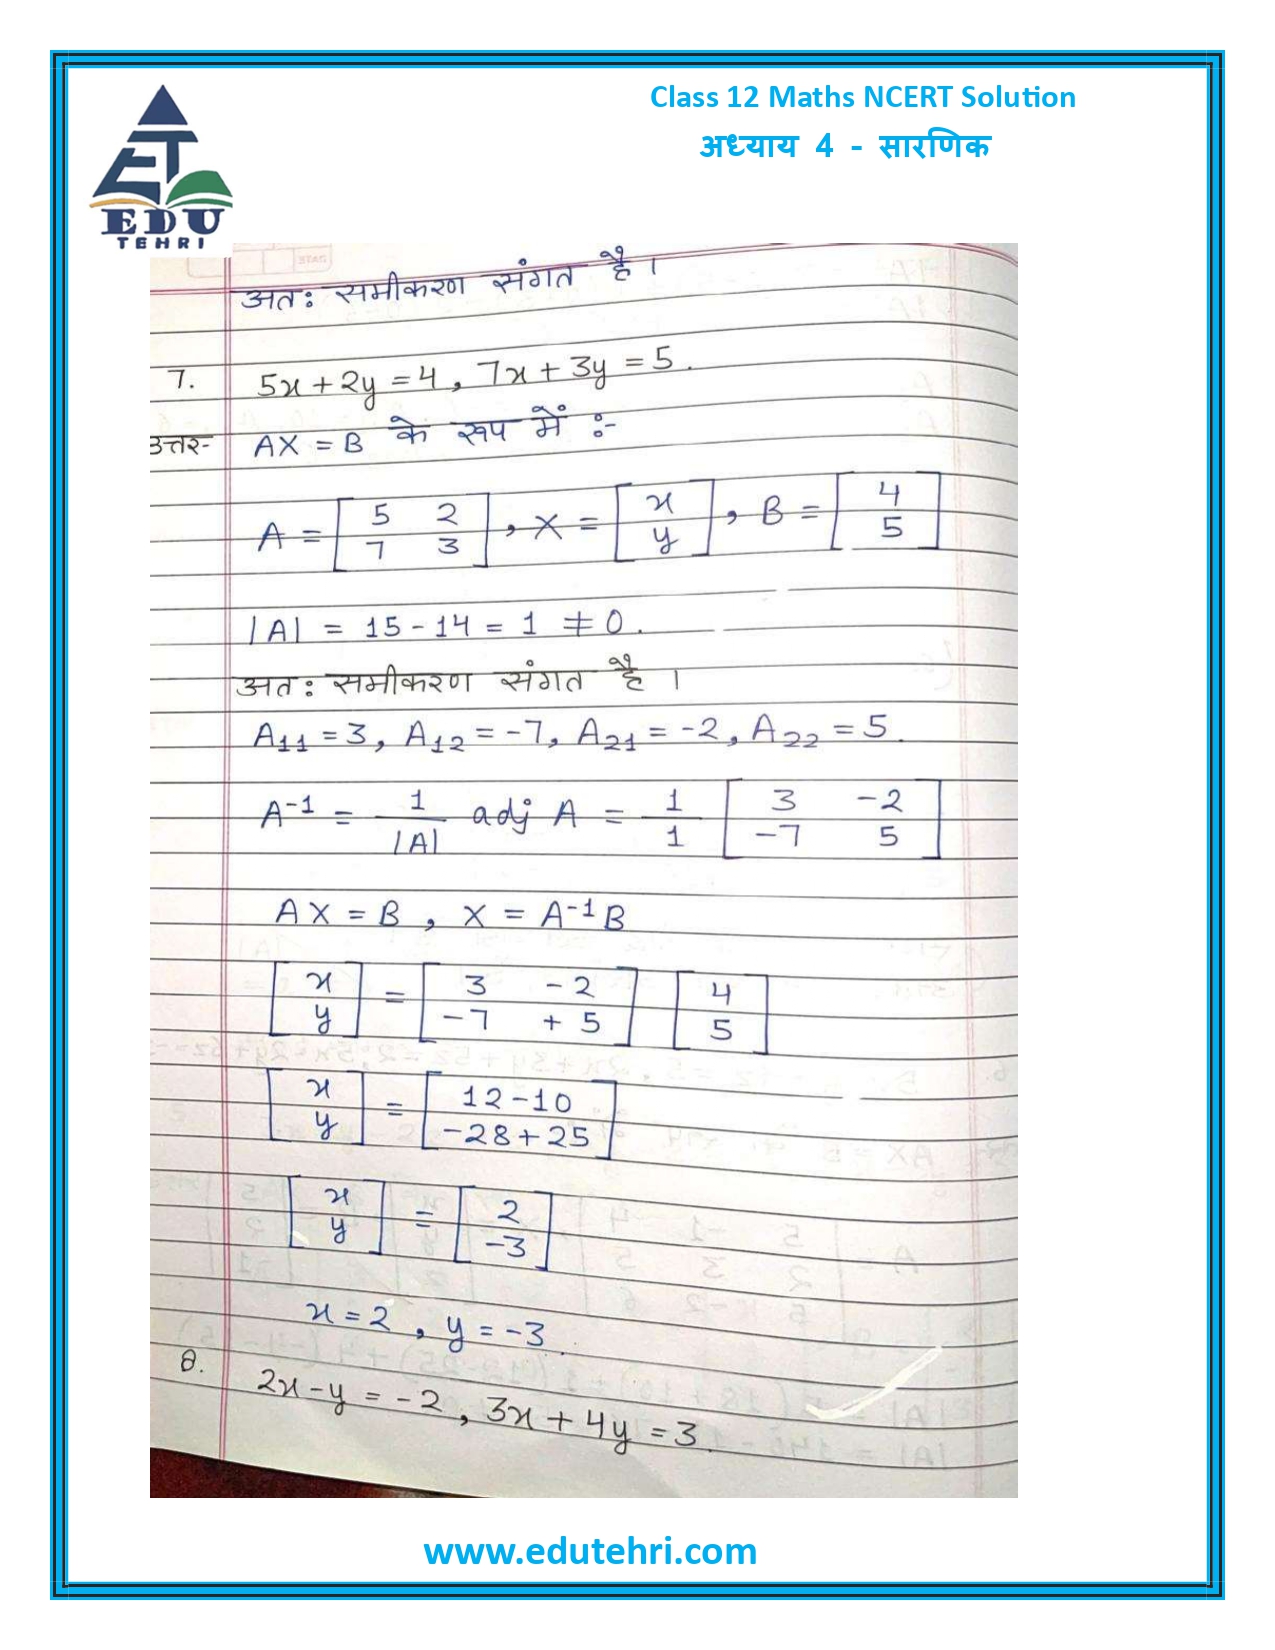 Class 12 Maths NCERT Solution
अध्याय 4 - सारणिक
EDU
TEHRI
अतः समीकरण संगत है ।
7. 5x + 2y = 4, 7x + 3y = 5.
उत्तर- AX = B के रूप में :-
A = [5 2
7 3], X = [x
y], B = [4
5]
|A| = 15 - 14 = 1 ≠ 0.
अतः समीकरण संगत है ।
A11 = 3, A12 = -7, A21 = -2, A22 = 5.
A⁻¹ = 1/|A| adj A = 1/1 [3 -2
-7 5]
AX = B, X = A⁻¹B
[x
y] = [3 -2
-7 +5] [4
5]
[x
y] = [12-10
-28+25]
[x
y] = [2
-3]
x = 2, y = -3.
8. 2x - y = -2, 3x + 4y = 3.
www.edutehri.com